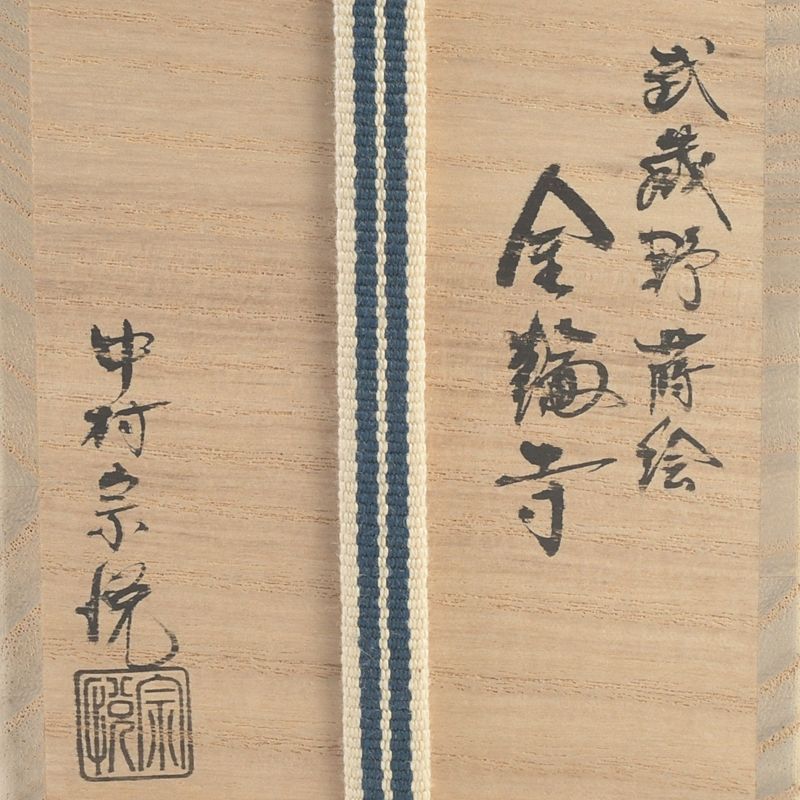 武蔵野蒔絵
金輪寺
中村宗悦
宗悦